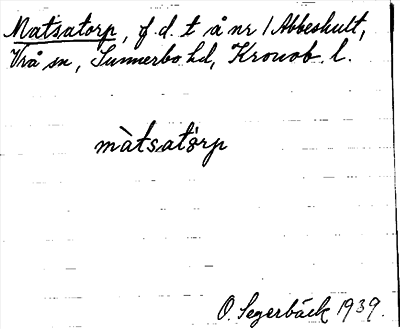 Matsatorp, f.d. t å nr 1 Abbeshult,
Vrå sn, Sunnerbo hd, Kronob. l.
màtsatȯrp
O. Segerbäck 1939.